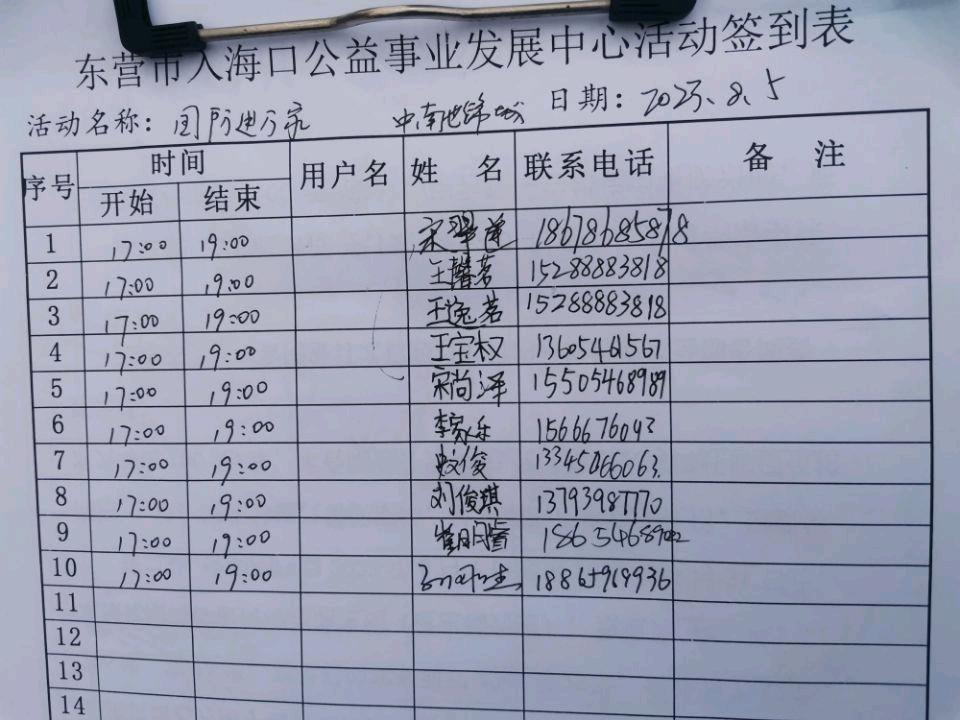 东营市入海口公益事业发展中心活动签到表
活动名称: 国防进万家 中南世纪城 日期: 2023.8.5
序号 时间 用户名 姓名 联系电话 备注
开始 结束
1 17:00 19:00 宋 18678685878
2 17:00 19:00 王馨茗 15288883818
3 17:00 19:00 王逸茗 15288883818
4 17:00 19:00 王宝权 13605461567
5 17:00 19:00 宋尚泽 15505468989
6 17:00 19:00 李家乐
7 17:00 19:00 俊 13345066063
8 17:00 19:00 刘俊琪
9 17:00 19:00
10 17:00 19:00
11
12
13
14